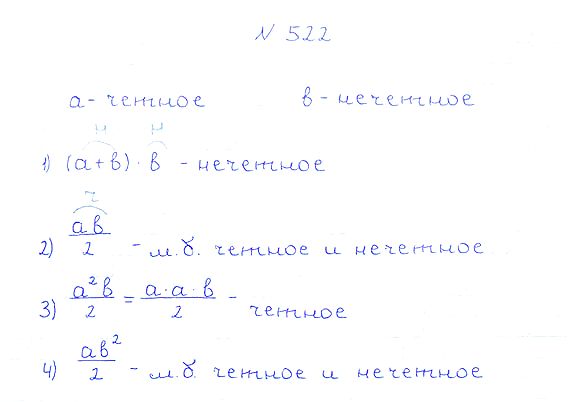 N 522
а - четное в - нечетное
н н
1) (а+в) · в - нечетное
ч
2) ав/2 - м.б. четное и нечетное
3) а²в/2 = а·а·в/2 - четное
4) ав²/2 - м.б. четное и нечетное